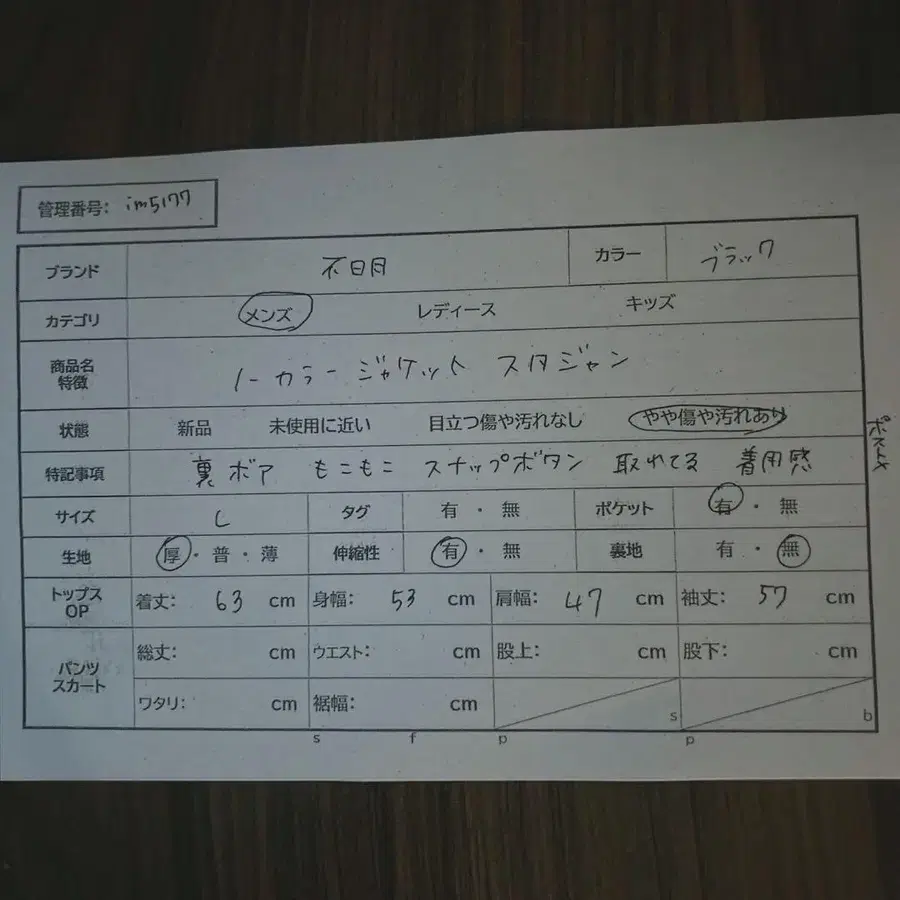 管理番号: im5177
ブランド 不明 カラー ブラック
カテゴリ メンズ レディース キッズ
商品名 特徴 ノーカラージャケット スタジャン
状態 新品 未使用に近い 目立つ傷や汚れなし やや傷や汚れあり
特記事項 裏ボア もこもこ スナップボタン 取れてる 着用感
サイズ L タグ 有・無 ポケット 有・無
生地 厚・普・薄 伸縮性 有・無 裏地 有・無
トップス OP 着丈: 63 cm 身幅: 53 cm 肩幅: 47 cm 袖丈: 57 cm
パンツ スカート 総丈: cm ウエスト: cm 股上: cm 股下: cm
ワタリ: cm 裾幅: cm s b
s f p p